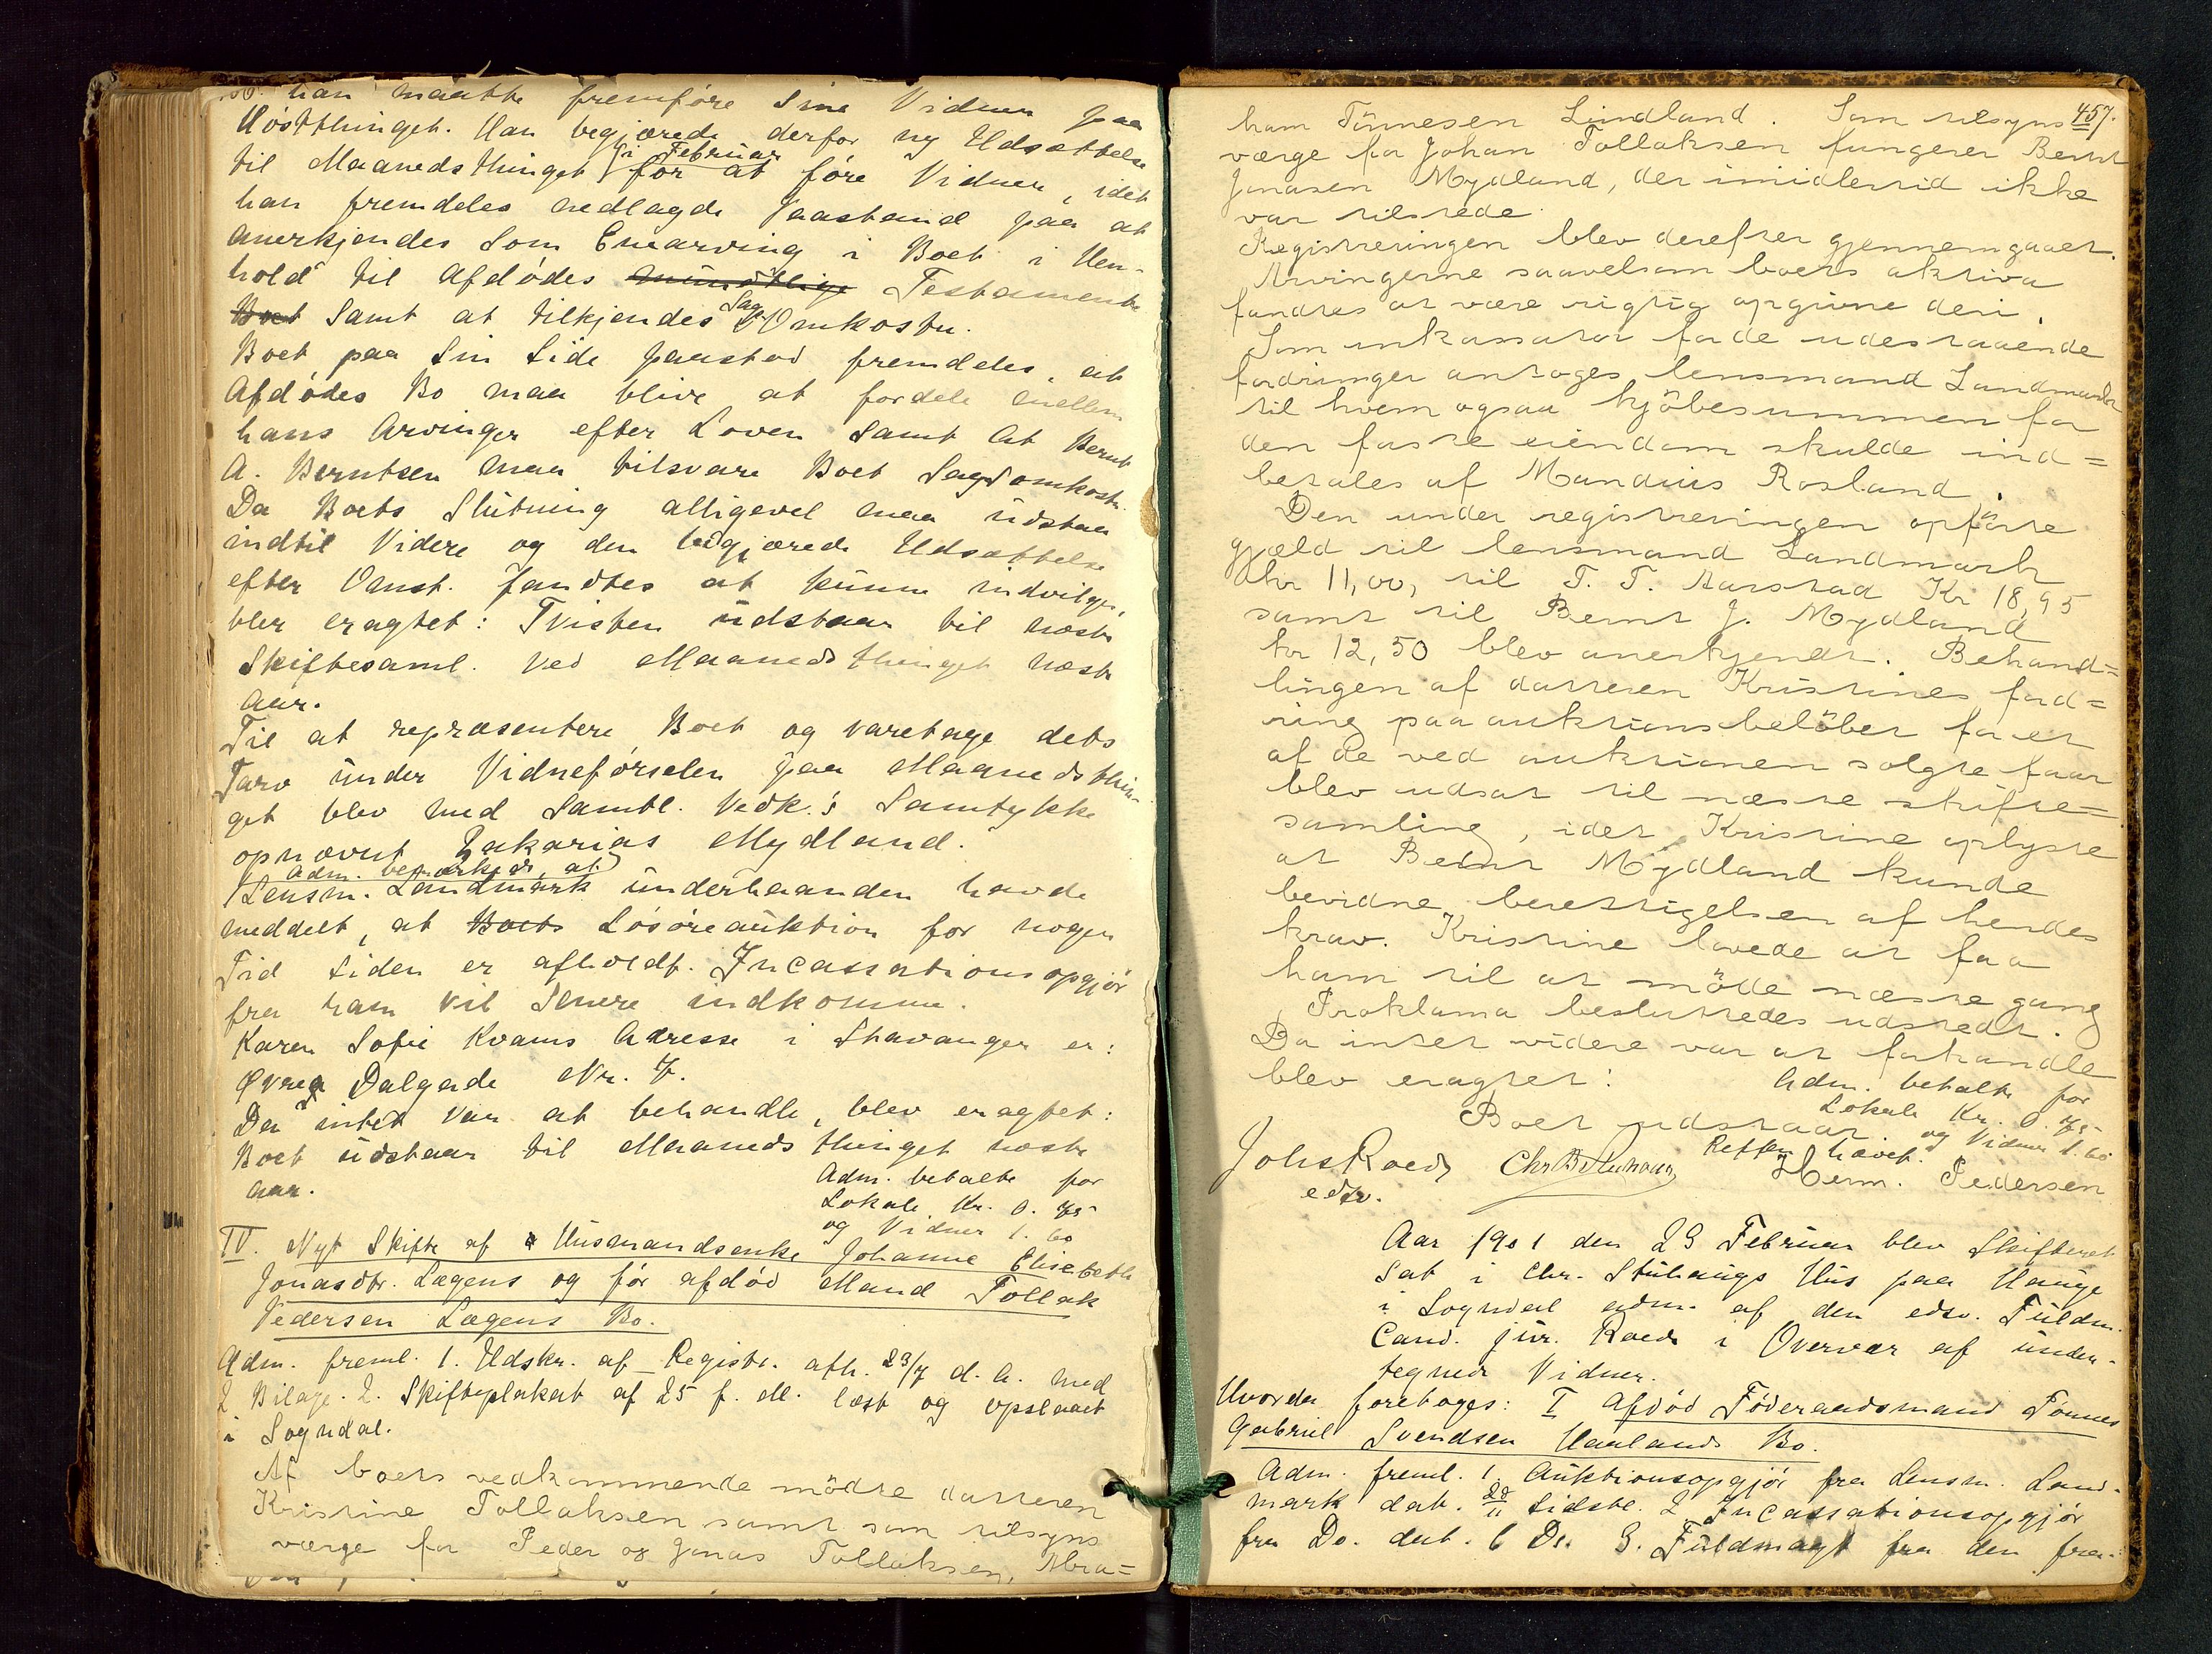 han maatte fremføre sine Vidner paa
Høstthinget. Han begjærede derfor ny Udsættelse
til Maanedsthinget i Februar for at føre Vidner, idet
han fremdeles nedlagde Paastand paa at
anerkjendes som Enearving i Boet i Hen-
hold til Afdødes mundtlige Testamente
Boet samt at tilkjendes Sags Omkostn.
Boet paa sin Side paastod fremdeles, at
Afdødes Bo maa blive at fordele mellem
hans Arvinger efter Loven samt at Bernt
A. Berntsen maa tilsvare Boet Sagsomkostn.
Da Boets Slutning alligevel maa udstaa
indtil Videre og den begjærede Udsættelse
efter Omst. fandtes at kunne indvilges,
blev eragtet: Tvisten udstaar til næste
Skiftesaml. ved Maanedsthinget næste
Aar.
Til at repræsentere Boet og varetage dets
Tarv under Vidneførselen paa Maanedsthin-
get blev med samtl. Vedk.'s Samtykke
opnævnt Zakarias Mydland.
Adm. bemærkede, at
Lensm. Landmark underhaanden havde
meddelt, at Boets Løsøreauktion for nogen
Tid siden er afholdt. Incassationsopgjør
fra ham vil senere indkomme.
Karen Sofie Kvams Adresse i Stavanger er:
Øvre Dalgade Nr. 7.
Da intet var at behandle, blev eragtet:
Boet udstaar til Maanedsthinget næste
Aar.
Adm. betalte for
Lokale Kr. 0.75
og Vidner 1.60
IV. Nyt Skifte af Husmandsenke Johanne Elisebeth
Jonasdtr. Lægens og før afdød Mand Tollak
Pedersen Lægens Bo.
Adm. freml. 1. Udskr. af Registr. afh. 23/7 d. A. med
2 Bilage. 2. Skifteplakat af 25 f. M. læst og opslaaet
i Sogndal.
Af boets vedkommende mödte datteren
Kristine Tollaksen samt som tilsyns
værge for Peder og Jonas Tollaksen, Abra=
457.
ham Tönnesen Lindland. Som tilsyns
værge for Johan Tollaksen fungerer Bernt
Jonasen Mydland, der imidlertid ikke
var tilstede.
Registreringen blev derefter gjennemgaaet.
Arvingerne saavelsom boets aktiva
fandtes at være rigtig opgivne deri.
Som inkassator for de udestaaende
fordringer antoges lensmand Landmark
til hvem ogsaa kjöbesummen for
den faste eiendom skulde ind=
betales af Mandius Rosland.
Den under registreringen opförte
gjæld til lensmand Landmark
Kr 11,00, til T. T. Aarstad Kr 18,95
samt til Bernt J. Mydland
kr 12,50 blev anerkjendt. Behand=
lingen af datteren Kristines ford=
ring paa auktionsbelöbet for et
af de ved auktionen solgte faar
blev udsat til næste skifte=
samling, idet Kristine oplyste
at Bernt Mydland kunde
bevidne berettigelsen af hendes
krav. Kristine lovede at faa
ham til at möde næste gang
Proklama besluttedes udstedt.
Da intet videre var at forhandle
blev eragtet:
Boet udstaar
Adm. betalte for
Lokale Kr. 0.75
og Vidner 1.60
Retten hævet.
Johs Roeds
edsv.
Herm. Pedersen
Aar 1901 den 23 Februar blev Skifteret
sat i Chr. Stuhaugs Hus paa Hauge
i Sogndal adm. af den edsv. Fuldm.
Cand. jur. Roeds i Overvær af under-
tegnede Vidner.
Hvorda foretoges: I Afdød Føderaadsmand Tønnes
Gabriel Svendsen Haalands Bo.
Adm. freml. 1. Auktionsopgjør fra Lensm. Land-
mark dat. 20/11 sidstl. 2 Incassationsopgjør
fra Do. dat. 6 Ds. 3. Fuldmagt fra den fra-